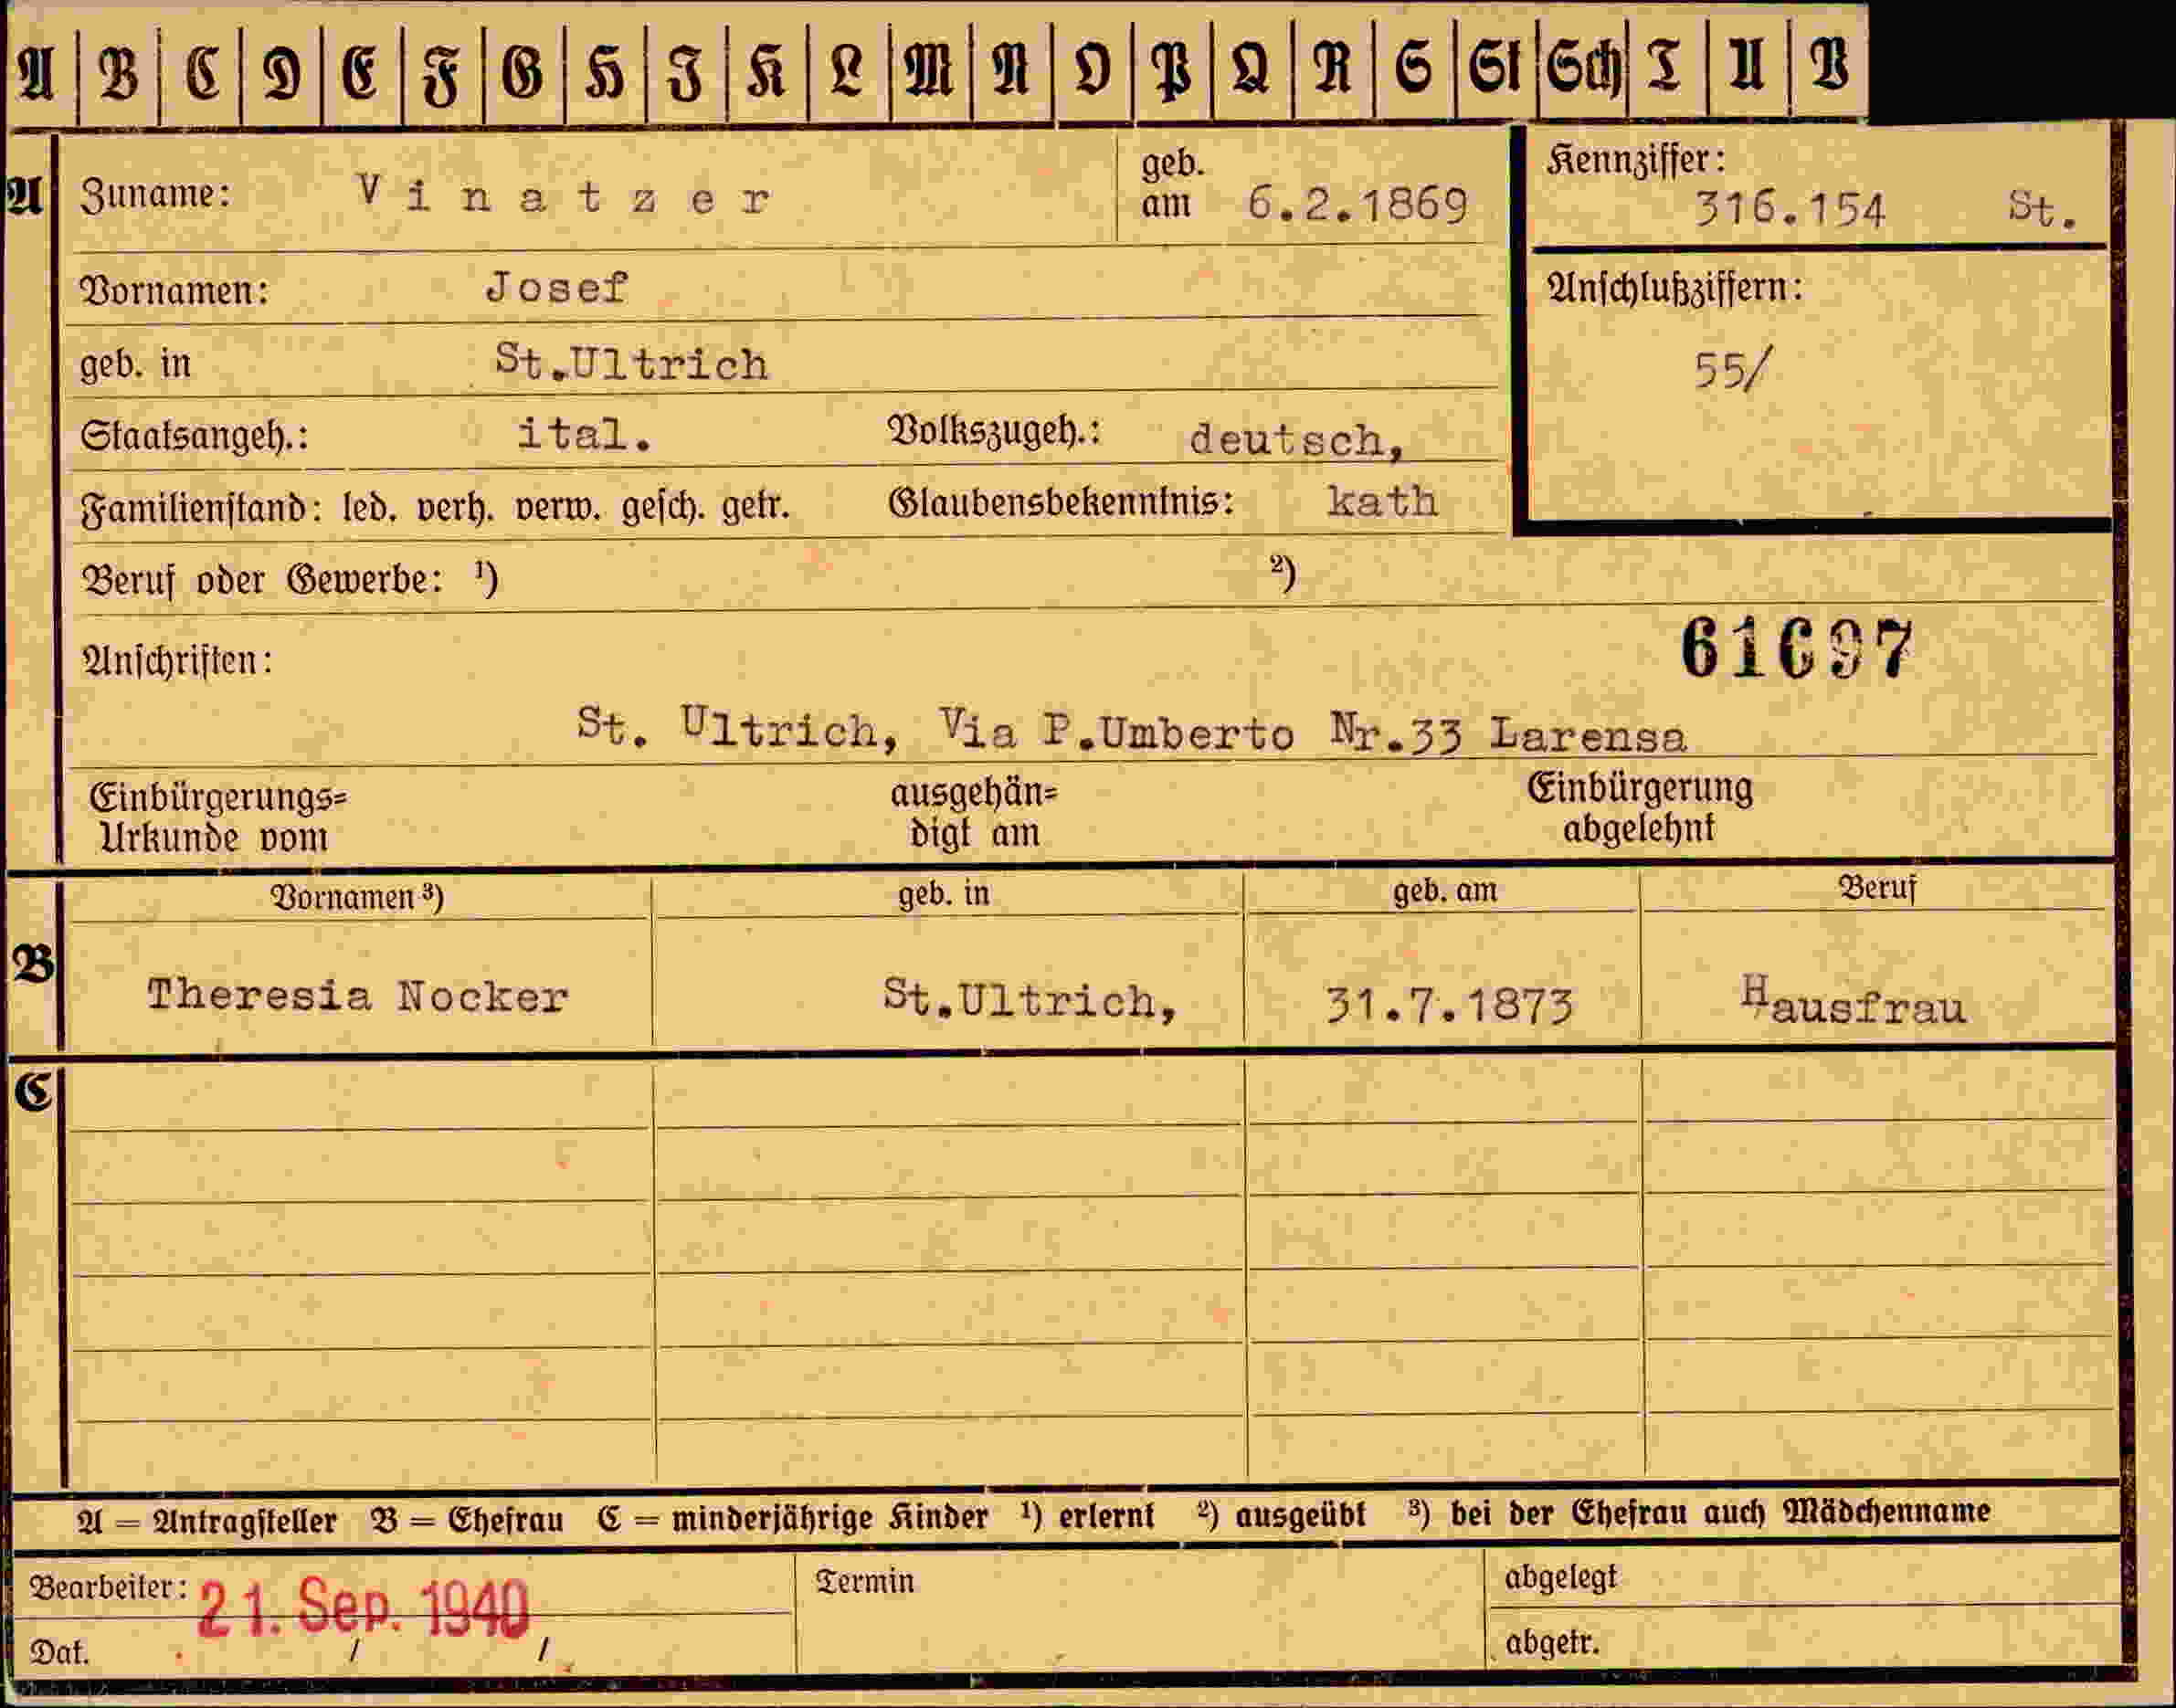 A B C D E F G H I K L M N O P Q R S St Sch T U V
A Zuname: Vinatzer geb. am 6.2.1869 Kennziffer: 316.154 St.
Vornamen: Josef Anschlußziffern:
geb. in St.Ultrich 55/
Staatsangeh.: ital. Volkszugeh.: deutsch,
Familienstand: led. verh. verw. gesch. getr. Glaubensbekenntnis: kath
Beruf oder Gewerbe: ¹) ²)
Anschriften: 61697
St. Ultrich, Via P.Umberto Nr.33 Larensa
Einbürgerungs= ausgehän= Einbürgerung
Urkunde vom digt am abgelehnt
Vornamen ³) geb. in geb. am Beruf
B Theresia Nocker St.Ultrich, 31.7.1873 Hausfrau
C
A = Antragsteller B = Ehefrau C = minderjährige Kinder ¹) erlernt ²) ausgeübt ³) bei der Ehefrau auch Mädchenname
Bearbeiter: 21. Sep. 1940 Termin abgelegt
Dat. / / abgetr.